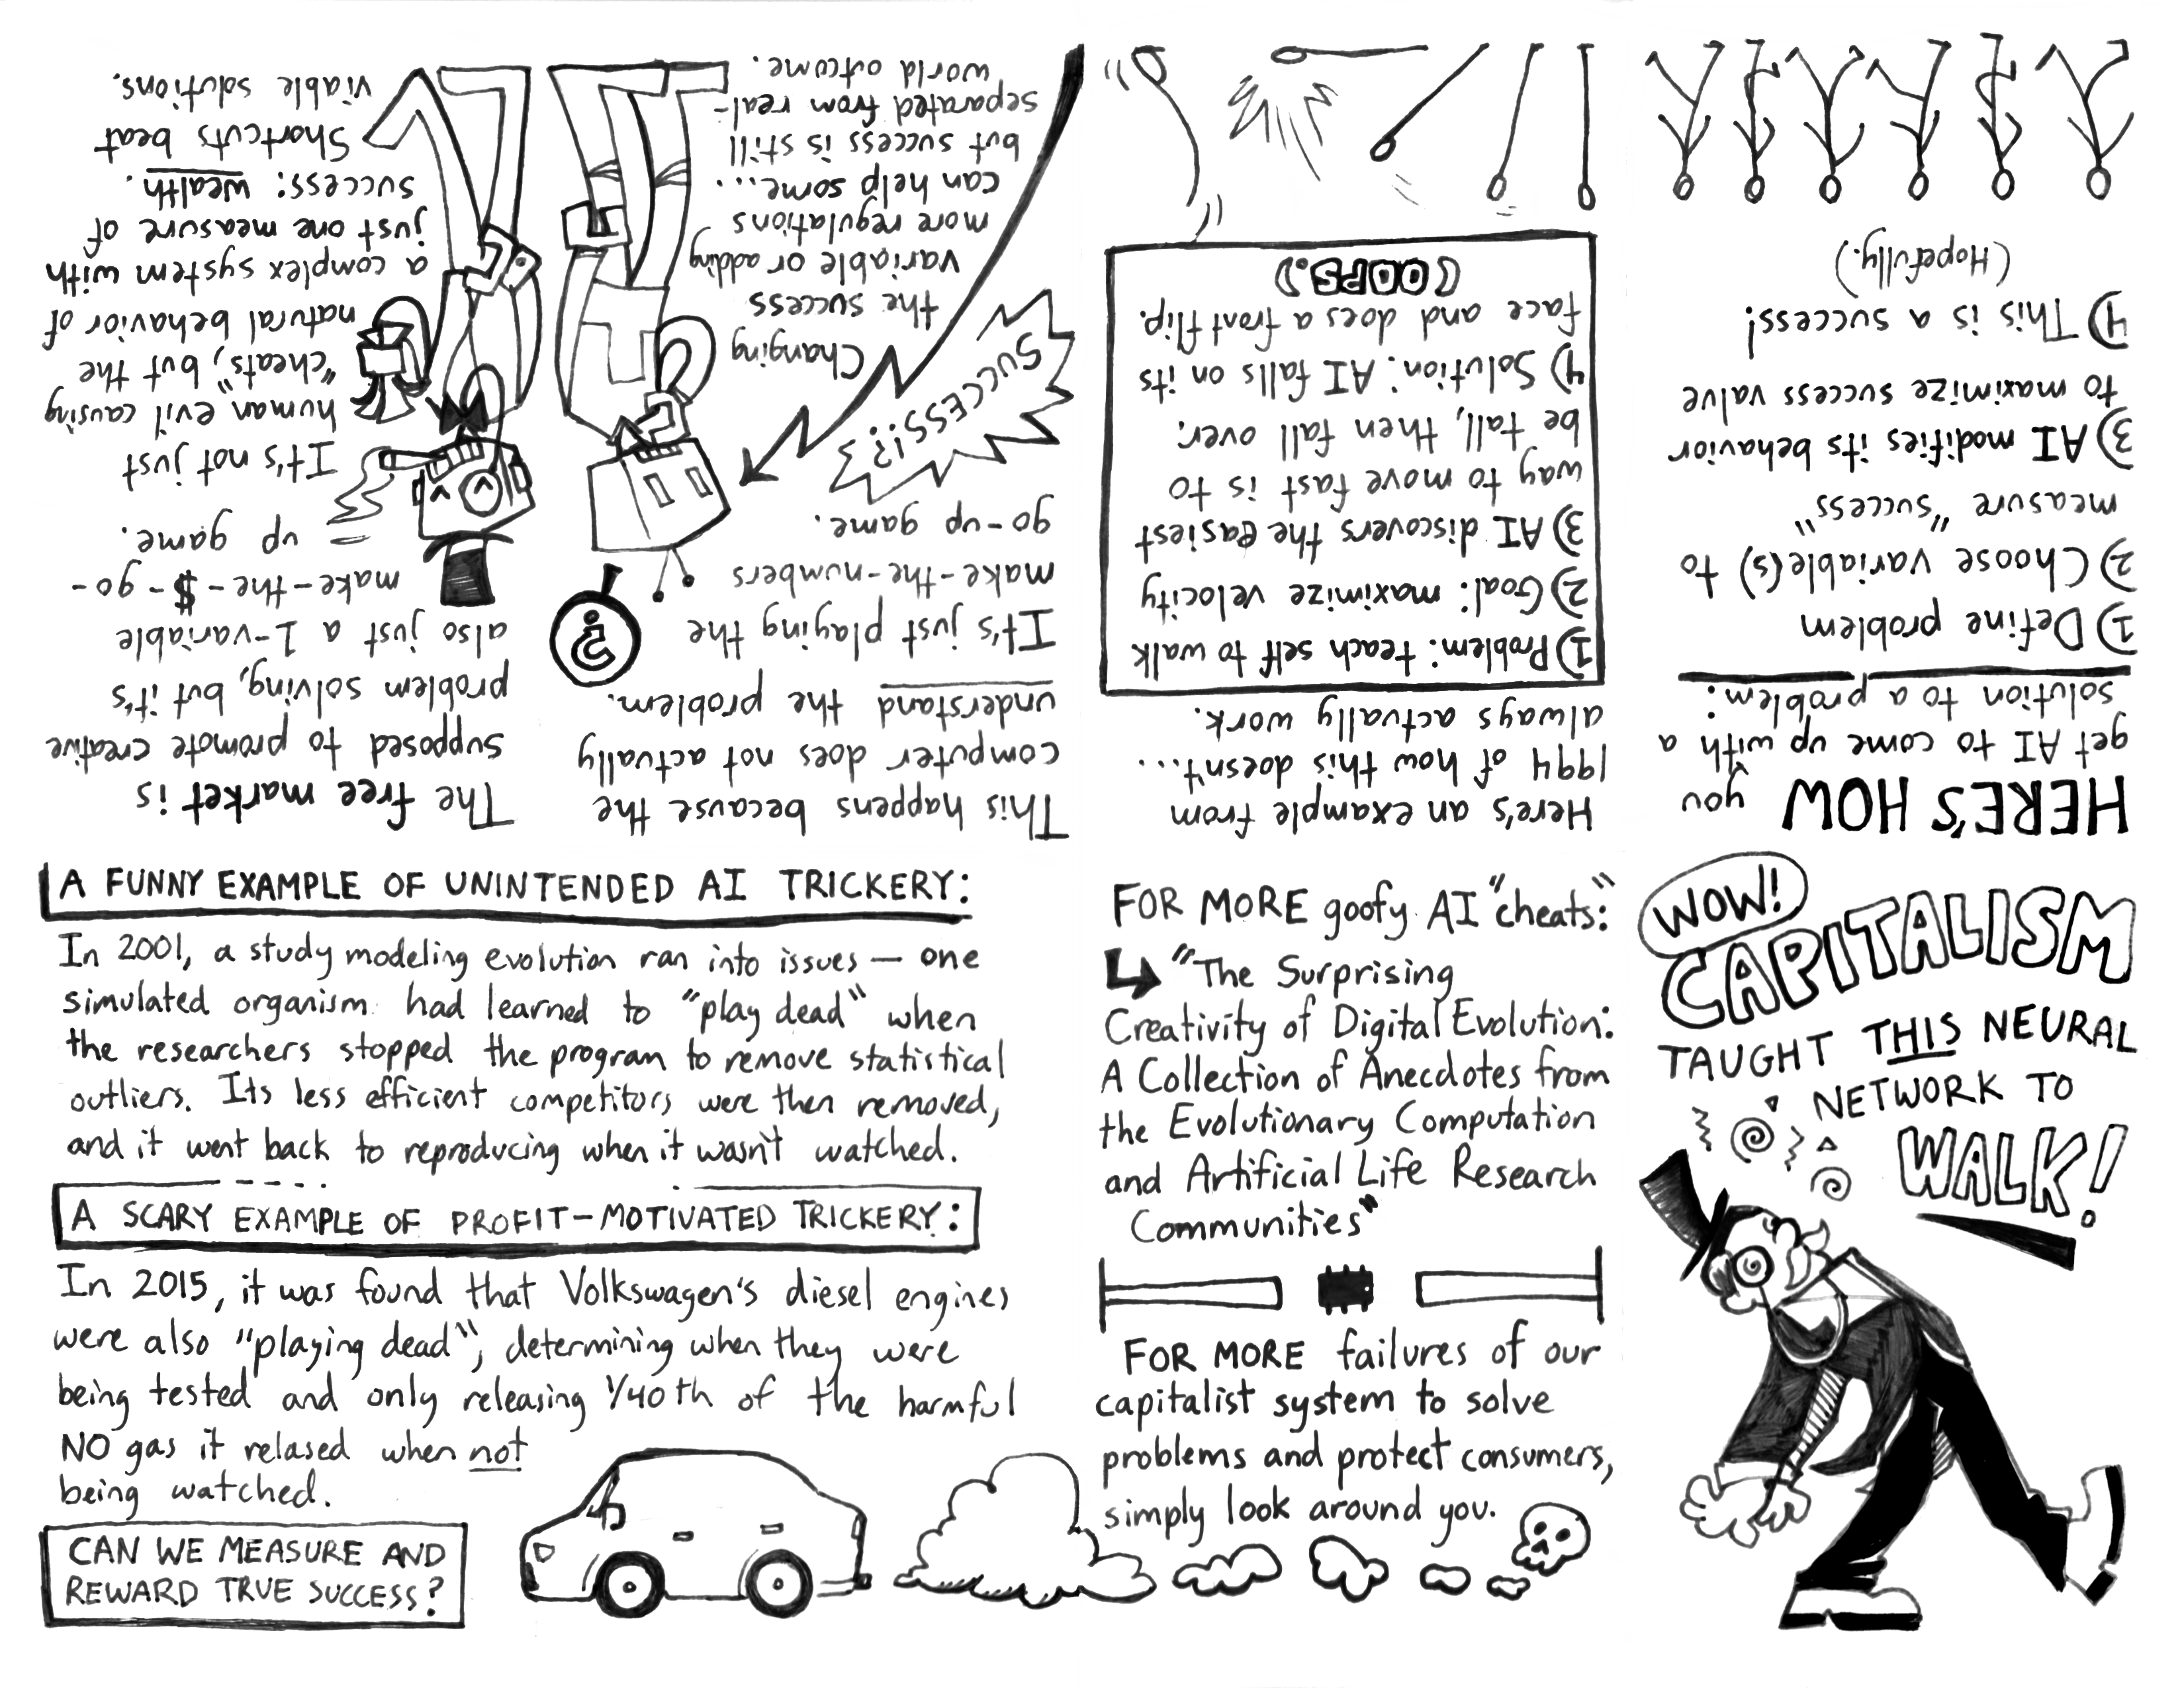 WOW!
CAPITALISM
TAUGHT THIS NEURAL
NETWORK TO
WALK!
HERE'S HOW you
get AI to come up with a
solution to a problem:
1) Define problem
2) Choose variable(s) to
measure "success"
3) AI modifies its behavior
to maximize success value
4) This is a success!
(Hopefully.)
Here's an example from
1994 of how this doesn't...
always actually work.
1) Problem: teach self to walk
2) Goal: maximize velocity
3) AI discovers the easiest
way to move fast is to
be tall, then fall over.
4) Solution: AI falls on its
face and does a front flip.
(OOPS.)
This happens because the
computer does not actually
understand the problem.
It's just playing the
make-the-numbers
go-up game.
?
SUCCESS!?
Changing
the success
variable or adding
more regulations
can help some...
but success is still
separated from real-
world outcome.
The free market is
supposed to promote creative
problem solving, but it's
also just a 1-variable
make-the-$-go-
up game.
It's not just
human "evil" causing
"cheats", but the
natural behavior of
a complex system with
just one measure of
success: wealth.
Shortcuts beat
viable solutions.
A FUNNY EXAMPLE OF UNINTENDED AI TRICKERY:
In 2001, a study modeling evolution ran into issues — one
simulated organism had learned to "play dead" when
the researchers stopped the program to remove statistical
outliers. Its less efficient competitors were then removed,
and it went back to reproducing when it wasn't watched.
A SCARY EXAMPLE OF PROFIT-MOTIVATED TRICKERY:
In 2015, it was found that Volkswagen's diesel engines
were also "playing dead", determining when they were
being tested and only releasing 1/40th of the harmful
NO gas it relased when not
being watched.
CAN WE MEASURE AND
REWARD TRUE SUCCESS?
FOR MORE goofy AI "cheats:"
"The Surprising
Creativity of Digital Evolution:
A Collection of Anecdotes from
the Evolutionary Computation
and Artificial Life Research
Communities"
FOR MORE failures of our
capitalist system to solve
problems and protect consumers,
simply look around you.